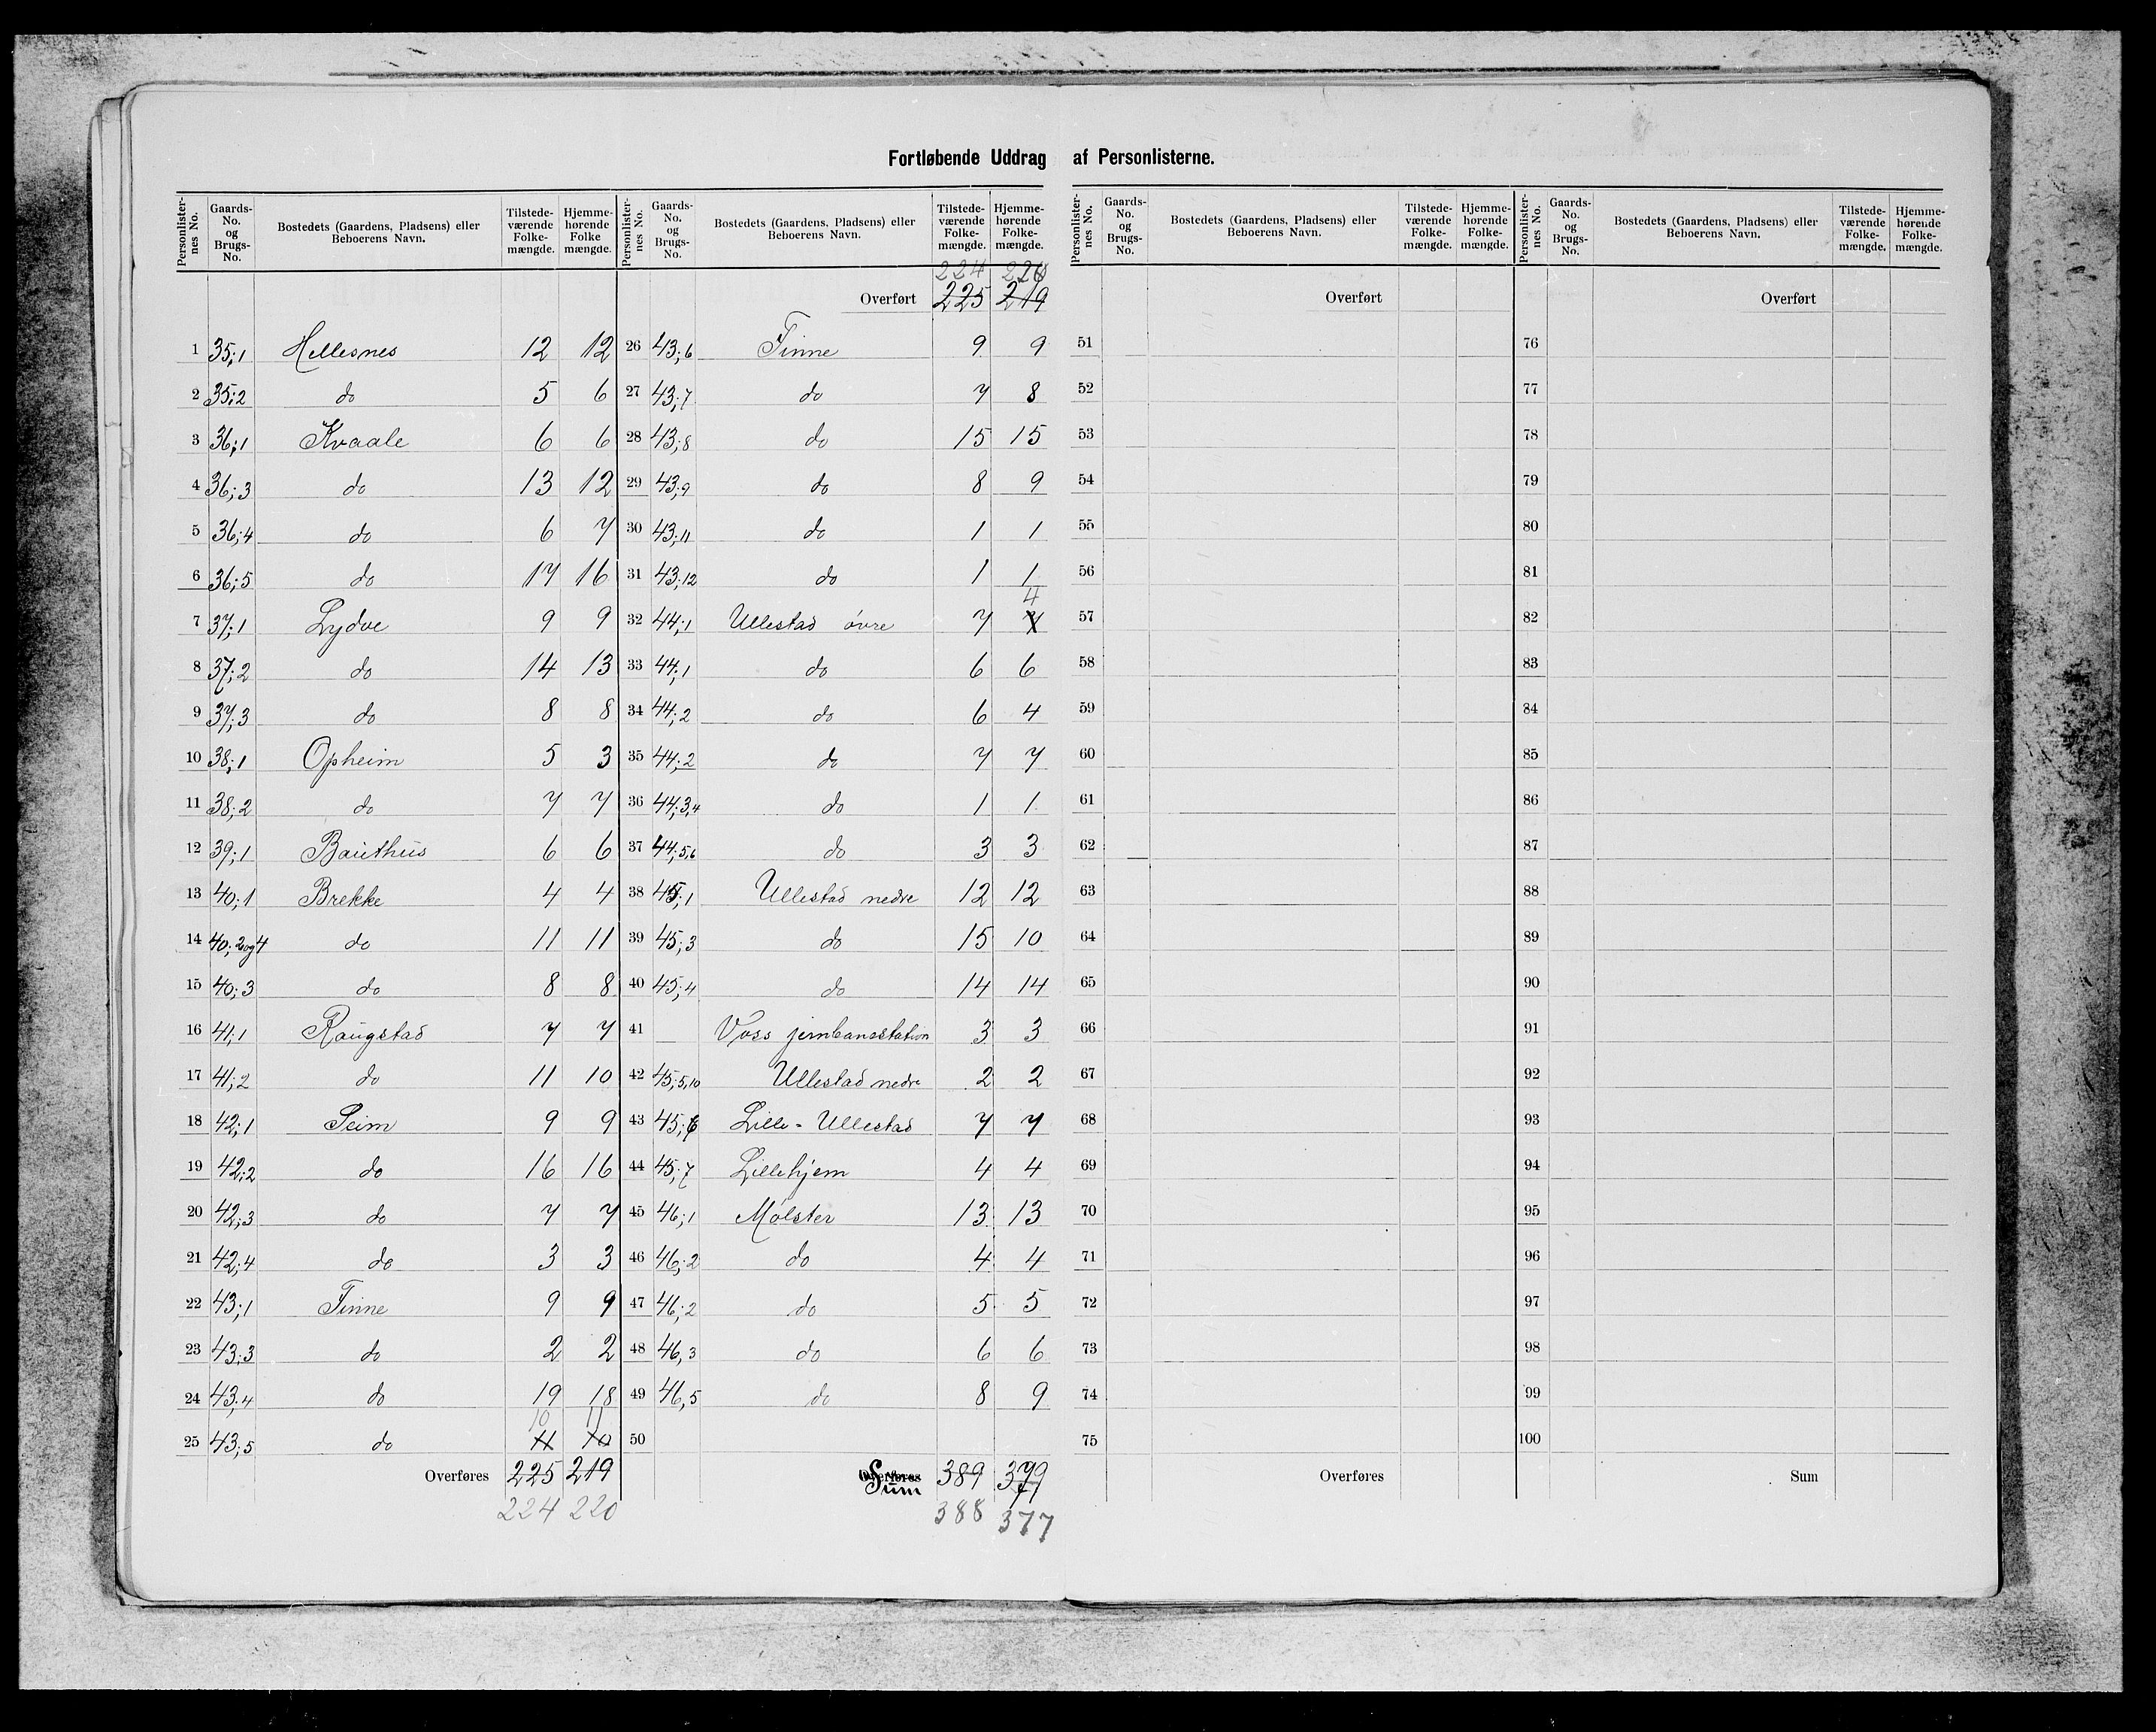 Fortløbende Uddrag af Personlisterne.
Personlister-nes No. Gaards-No. og Brugs-No. Bostedets (Gaardens, Pladsens) eller Beboerens Navn. Tilstede-værende Folke-mængde. Hjemme-hørende Folke mængde.
1 35;1 Hellesnes 12 12
2 35;2 do 5 6
3 36;1 Kvaale 6 6
4 36;3 do 13 12
5 36;4 do 6 7
6 36;5 do 17 16
7 37;1 Lydve 9 9
8 37;2 do 14 13
9 37;3 do 8 8
10 38;1 Opheim 5 3
11 38;2 do 7 7
12 39;1 Bauthus 6 6
13 40;1 Brekke 4 4
14 40;2og4 do 11 11
15 40;3 do 8 8
16 41;1 Raugstad 7 7
17 41;2 do 11 10
18 42;1 Seim 9 9
19 42;2 do 16 16
20 42;3 do 7 7
21 42;4 do 3 3
22 43;1 Finne 9 9
23 43;3 do 2 2
24 43;4 do 19 18
10 11
25 43;5 do 11 10
Overføres 225 219
224 220
Personlister-nes No. Gaards-No. og Brugs-No. Bostedets (Gaardens, Pladsens) eller Beboerens Navn. Tilstede-værende Folke-mængde. Hjemme-hørende Folke-mængde.
224 220
Overført 225 219
26 43;6 Finne 9 9
27 43;7 do 7 8
28 43;8 do 15 15
29 43;9 do 8 9
30 43;11 do 1 1
31 43;12 do 1 1
4
32 44;1 Ullestad øvre 7 7
33 44;1 do 6 6
34 44;2 do 6 4
35 44;2 do 7 7
36 44;3,4 do 1 1
37 44;5,6 do 3 3
38 45;1 Ullestad nedre 12 12
39 45;3 do 15 10
40 45;4 do 14 14
41 Voss jernbanestation 3 3
42 45;5,10 Ullestad nedre 2 2
43 45;6 Lille-Ullestad 7 7
44 45;7 Lillehjem 4 4
45 46;1 Mølster 13 13
46 46;2 do 4 4
47 46;2 do 5 5
48 46,3 do 6 6
49 46,5 do 8 9
50
Overføres Sum 389 379
388 377
Personlister-nes No. Gaards-No. og Brugs-No. Bostedets (Gaardens, Pladsens) eller Beboerens Navn. Tilstede-værende Folke-mængde. Hjemme-hørende Folke-mængde.
Overført
51
52
53
54
55
56
57
58
59
60
61
62
63
64
65
66
67
68
69
70
71
72
73
74
75
Overføres
Personlister-nes No. Gaards-No. og Brugs-No. Bostedets (Gaardens, Pladsens) eller Beboerens Navn. Tilstede-værende Folke-mængde. Hjemme-hørende Folke-mængde.
Overført
76
77
78
79
80
81
82
83
84
85
86
87
88
89
90
91
92
93
94
95
96
97
98
99
100
Sum